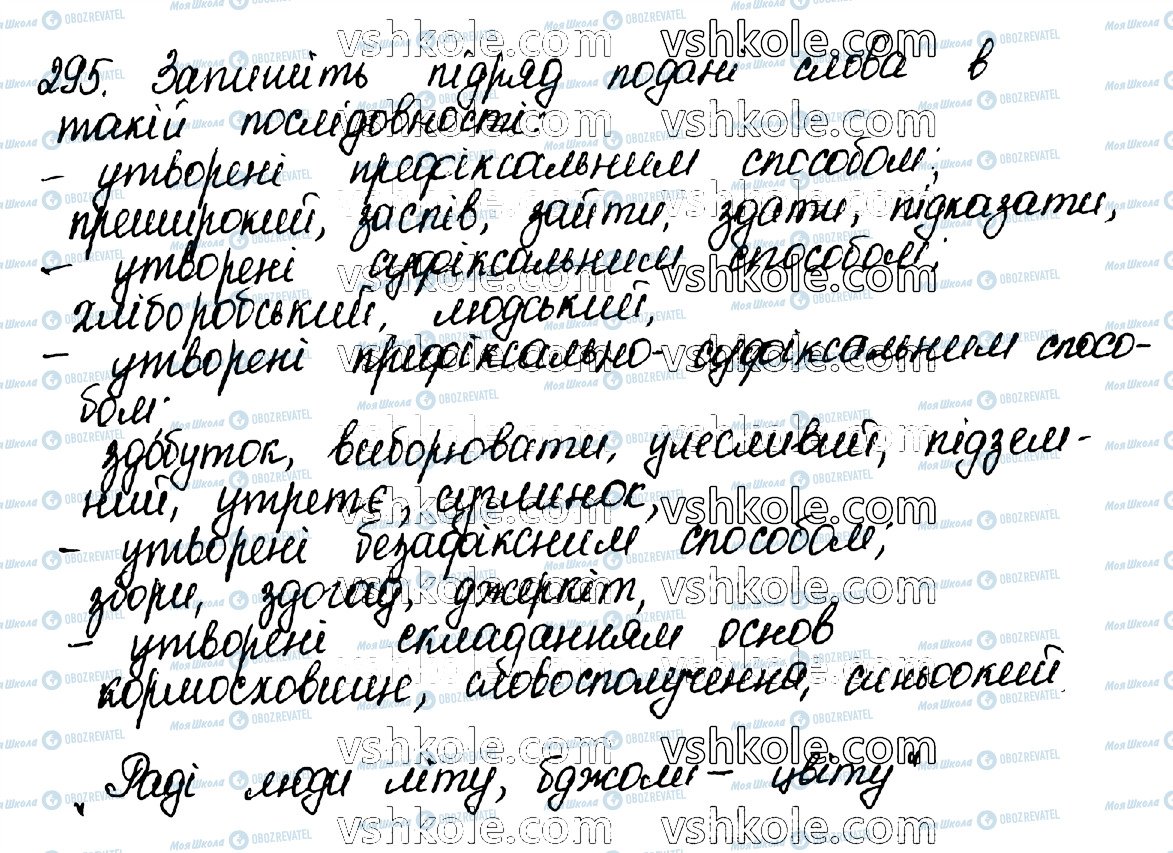 295. Запишіть підряд подані слова в
такій послідовності:
– утворені префіксальним способом;
преширокий, заспів, зайти, здати, підказати,
– утворені суфіксальним способом;
хліборобський, людський,
– утворені префіксально-суфіксальним спосо-
бом;
здобуток, виборювати, улесливий, підзем-
ний, утретє, суглинок,
– утворені безафіксним способом;
збори, здогад, джеркіт,
– утворені складанням основ
кормосховище, словосполучення, синьоокий.
„Раді люди літу, бджоли – цвіту"